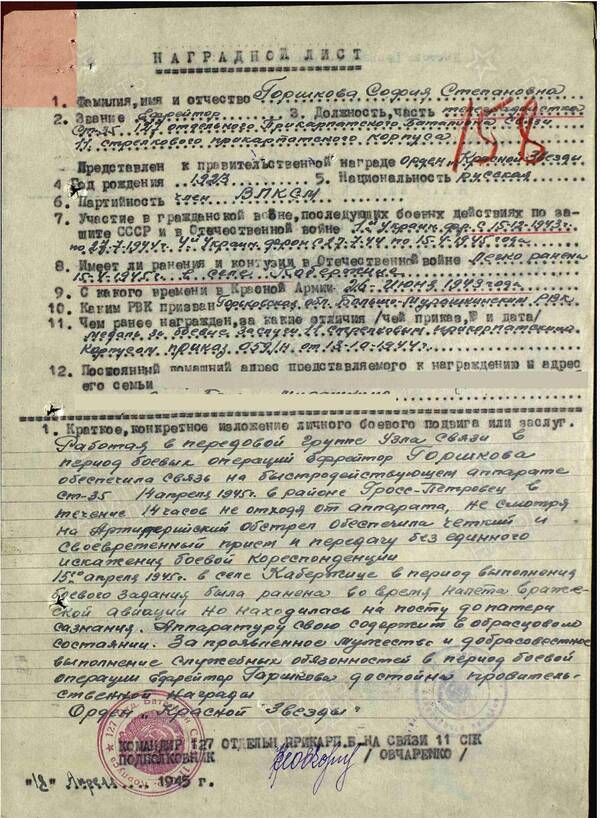 НАГРАДНОЙ ЛИСТ
1. Фамилия, имя и отчество Горшкова София Степановна
2. Звание Ефрейтор 3. Должность, часть телеграфистка
Ст-35 127 отдельного Прикарпатского Батальона Связи
11 стрелкового прикарпатского корпуса
158
Представлен к правительственной награде Орден "Красной Звезды
4 Год рождения 1923 5. Национальность русская
6. Партийность член ВЛКСМ
7. Участие в гражданской войне, последующих боевых действиях по за-
щите СССР и в Отечественной войне 1й Украин. фр. с 15.12.1943г
по 27.7.1944г. 4й Украин. фронт с 27.7.44 по 15.4.1945 года
8. Имеет ли ранения и контузии в Отечественной войне Легко ранена
15.4.1945г. в селе Кабержице
9. С какого времени в Красной Армии Июня 1943 года
10. Каким РВК призван Горьковская обл. Больше-Мурашкинским РВК
11. Чем ранее награжден, за какие отличия /чей приказ, № и дата/
Медаль За Боевые Заслуги 11 Стрелковым прикарпатским
Корпусом приказ 059/н от 13.10.1944г
12. Постоянный домашний адрес представляемого к награждению и адрес
его семьи
1. Краткое, конкретное изложение личного боевого подвига или заслуг.
Работая в передовой группе Узла Связи в
период боевых операций Ефрейтор Горшкова
обеспечила связь на быстродействующем аппарате
ст-35 14 апреля 1945г. в районе Гросс-Петровец в
течение 14 часов не отходя от аппарата, не смотря
на Артилерийский обстрел обеспечила четкий и
своевременный прием и передачу без единного
искажения боевой кореспонденции
15го апреля 1945г. в селе Кабержице в период выполнения
боевого задания была ранена во время налета враже-
ской авиации но находилась на посту до патери
сазнания. Аппаратуру свою содержит в образцовом
состоянии. За проявленное мужество и добрасовестное
выполнение служебных обязонностей в период боевой
операции ефрейтор Горшкова достойна провитель-
ственной Награды
Орден "Красной Звезды"
КОМАНДИР 127 ОТДЕЛЬН ПРИКАРП.Б-НА СВЯЗИ 11 СПК
ПОДПОЛКОВНИК / ОВЧАРЕНКО /
Апреля 1945 г.